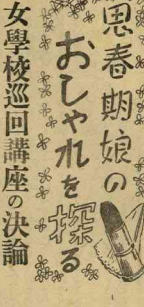 思春期娘の
おしゃれを探る
女學校巡回講座の決論